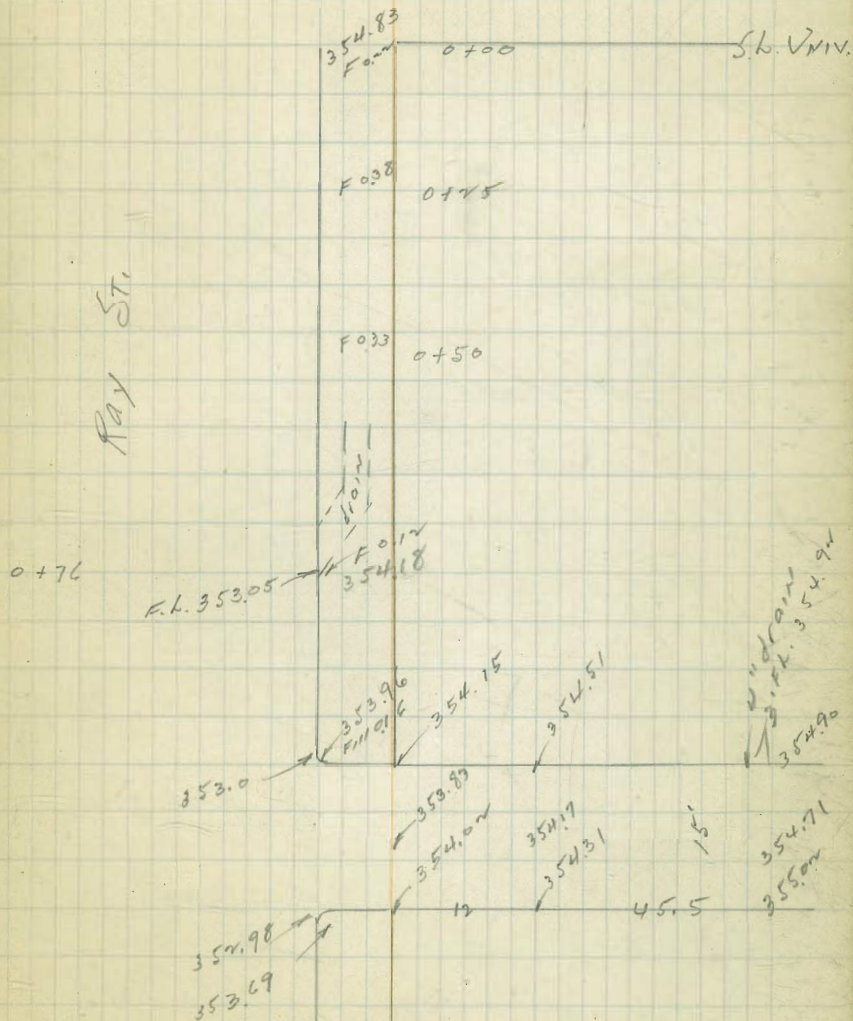 354.83
F 0.22
0+00
S.L. UNIV.
F 0.38
0+25
Ray St.
F 0.33
0+50
drain
0+76
F 0.12
354.18
F.L. 353.05
353.96
354.15
354.51
" drain
F.L. 354.92
354.90
353.0
353.83
354.02
354.17
354.31
15'
354.71
355.02
12
45.5
352.98
353.69